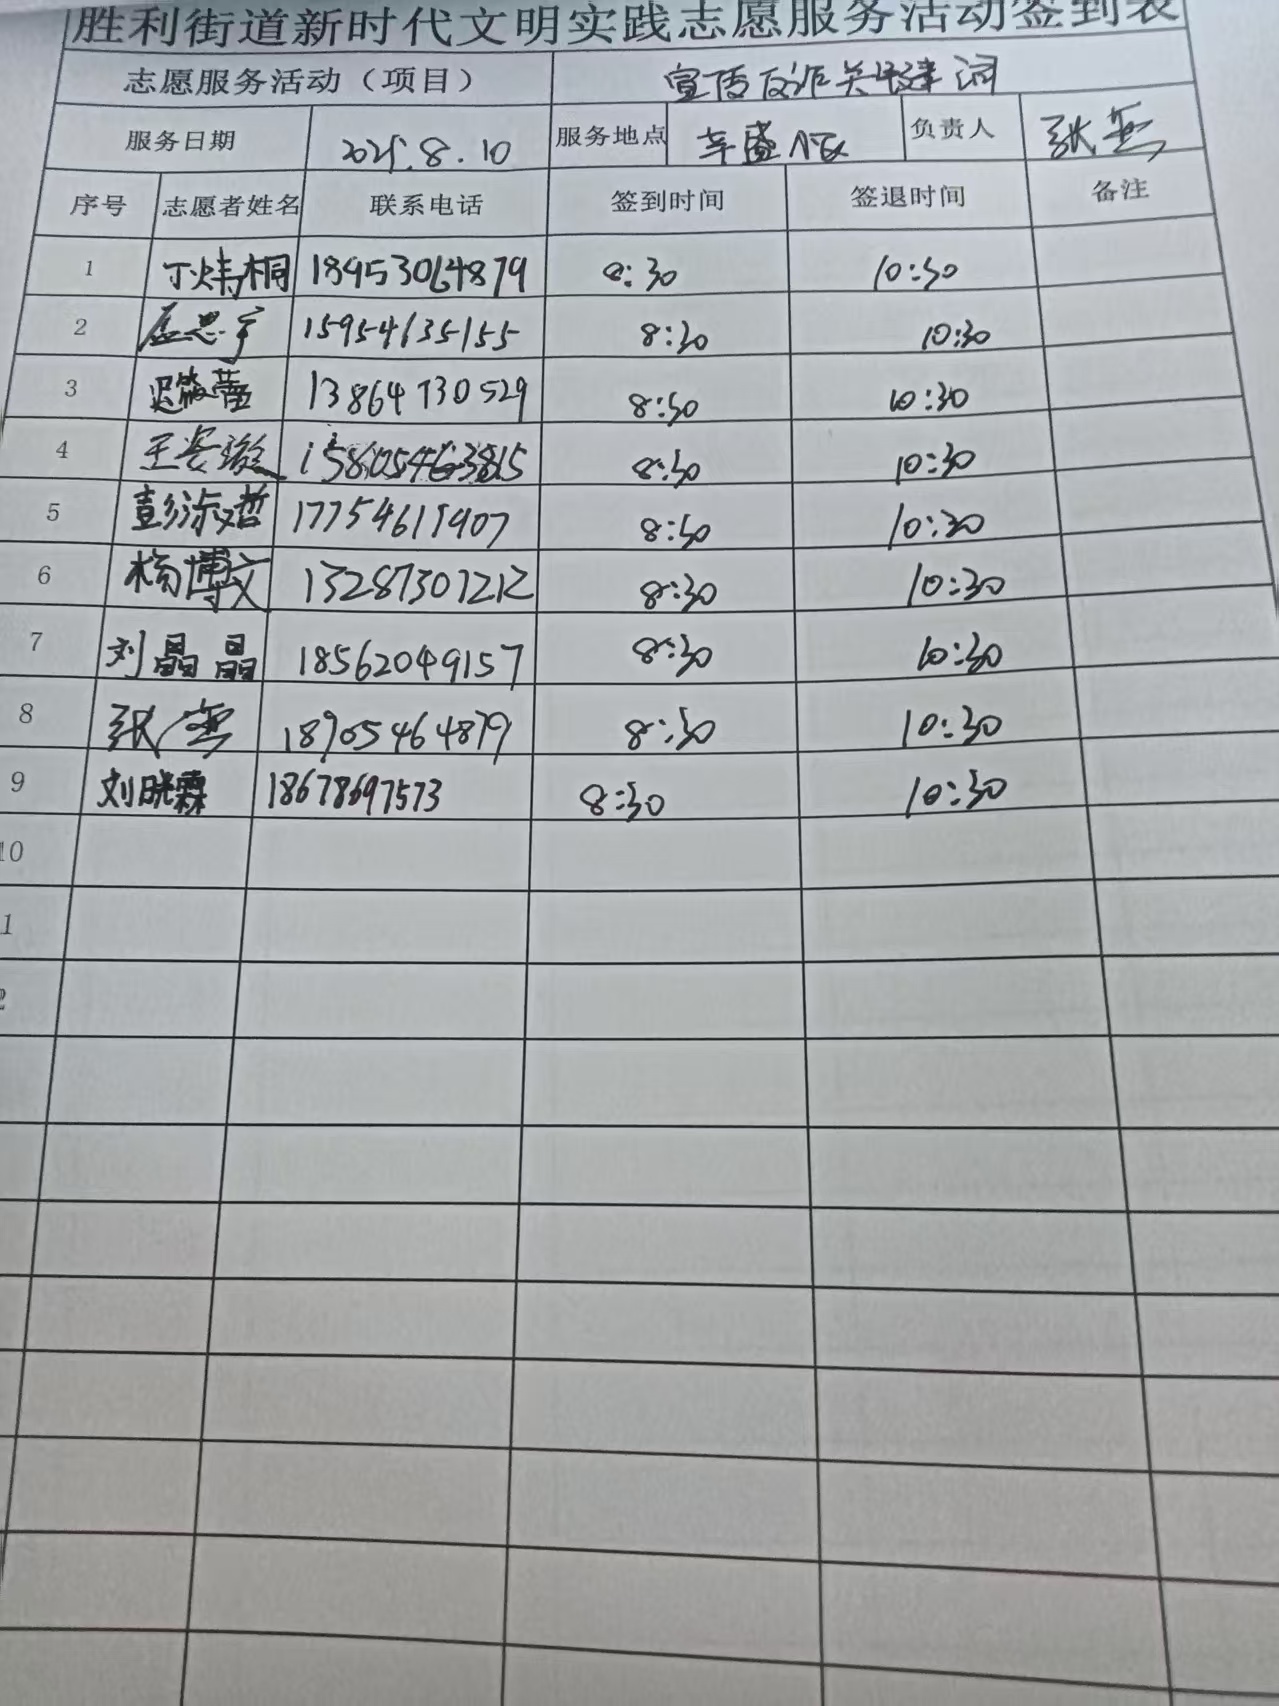 胜利街道新时代文明实践志愿服务活动签到表
志愿服务活动（项目） 宣传反诈关键词
服务日期 2025.8.10 服务地点 辛盛小区 负责人 张雪
序号 志愿者姓名 联系电话 签到时间 签退时间 备注
1 丁炜桐 18953064879 8:30 10:30
2 思宇 15954635155 8:30 10:30
3 13864730529 8:30 10:30
4 王姿璇 8:30 10:30
5 彭添哲 17754611907 8:30 10:30
6 杨博文 13287301212 8:30 10:30
7 刘晶晶 18562049157 8:30 10:30
8 张雪 18905464879 8:30 10:30
9 刘晓霖 18678697573 8:30 10:30
10
1
2